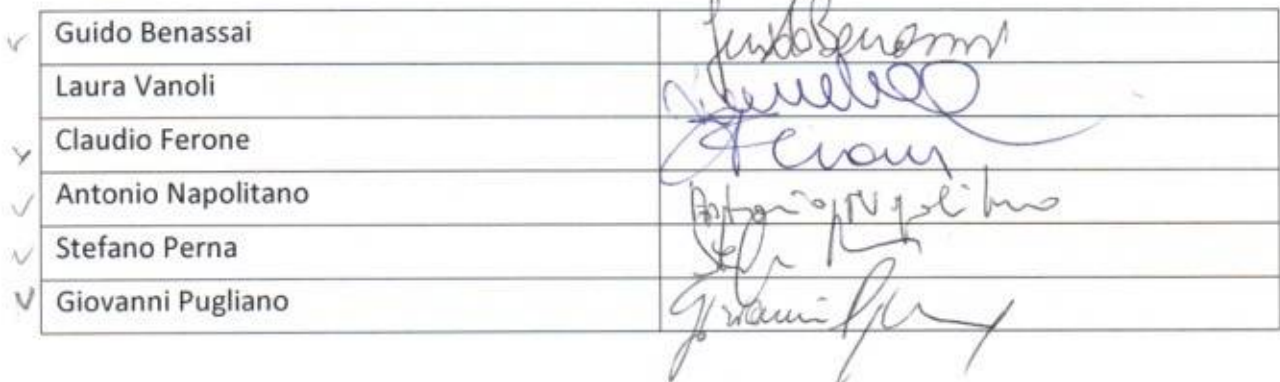 Guido Benassai Guido Benassai
Laura Vanoli
Claudio Ferone
Antonio Napolitano Antonio Napolitano
Stefano Perna
Giovanni Pugliano Giovanni